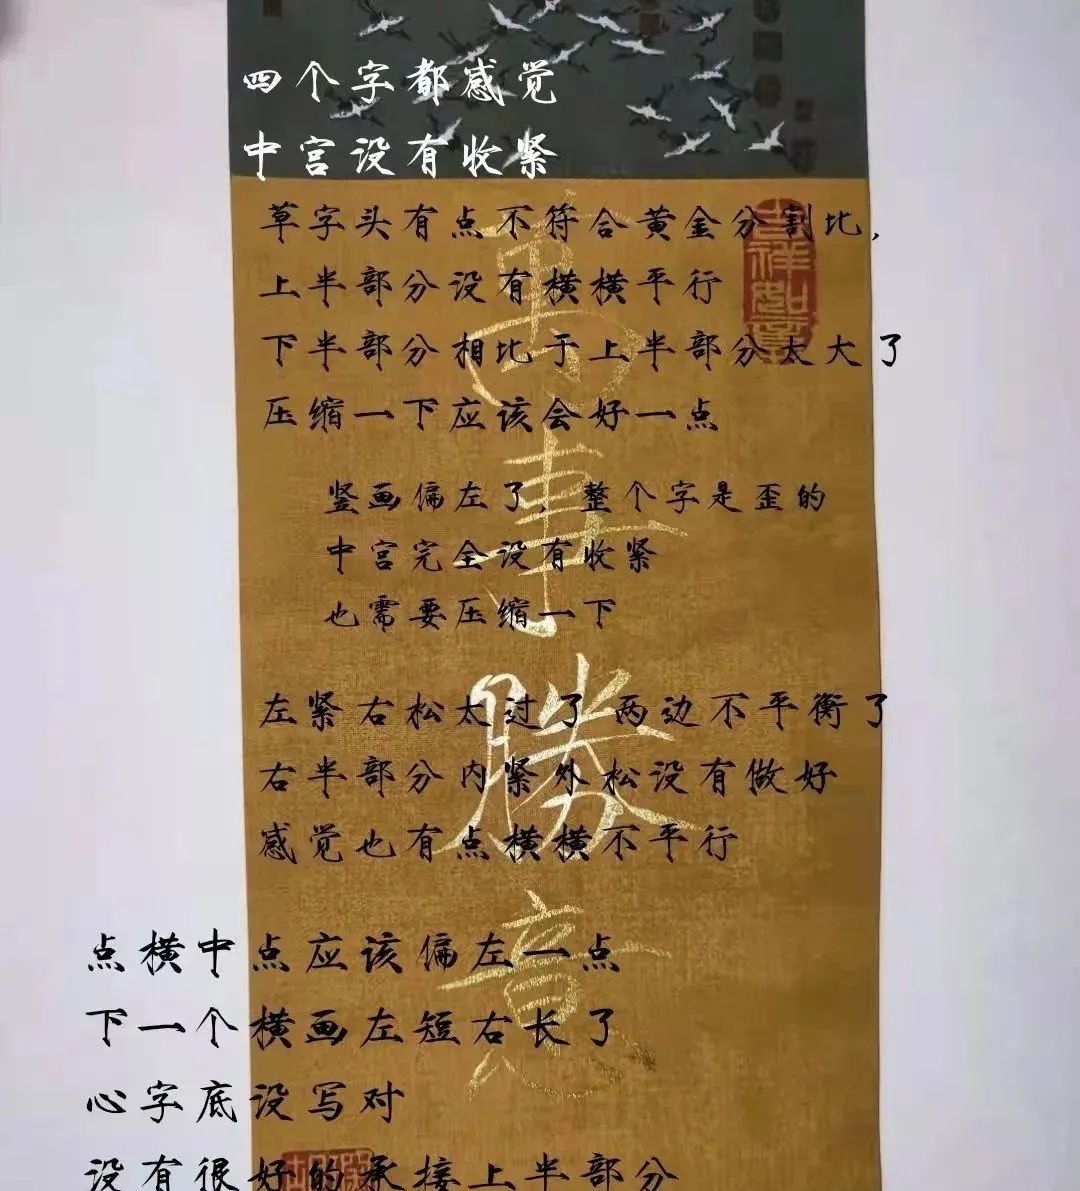 四个字都感觉
中宫没有收紧
草字头有点不符合黄金分割比,
上半部分没有横横平行
下半部分相比于上半部分太大了
压缩一下应该会好一点
竖画偏左了,整个字是歪的
中宫完全没有收紧
也需要压缩一下
左紧右松太过了 两边不平衡了
右半部分内紧外松没有做好
感觉也有点横横不平行
点横中点应该偏左一点
下一个横画左短右长了
心字底没写对
没有很好的承接上半部分
萬事勝意
吉祥如意